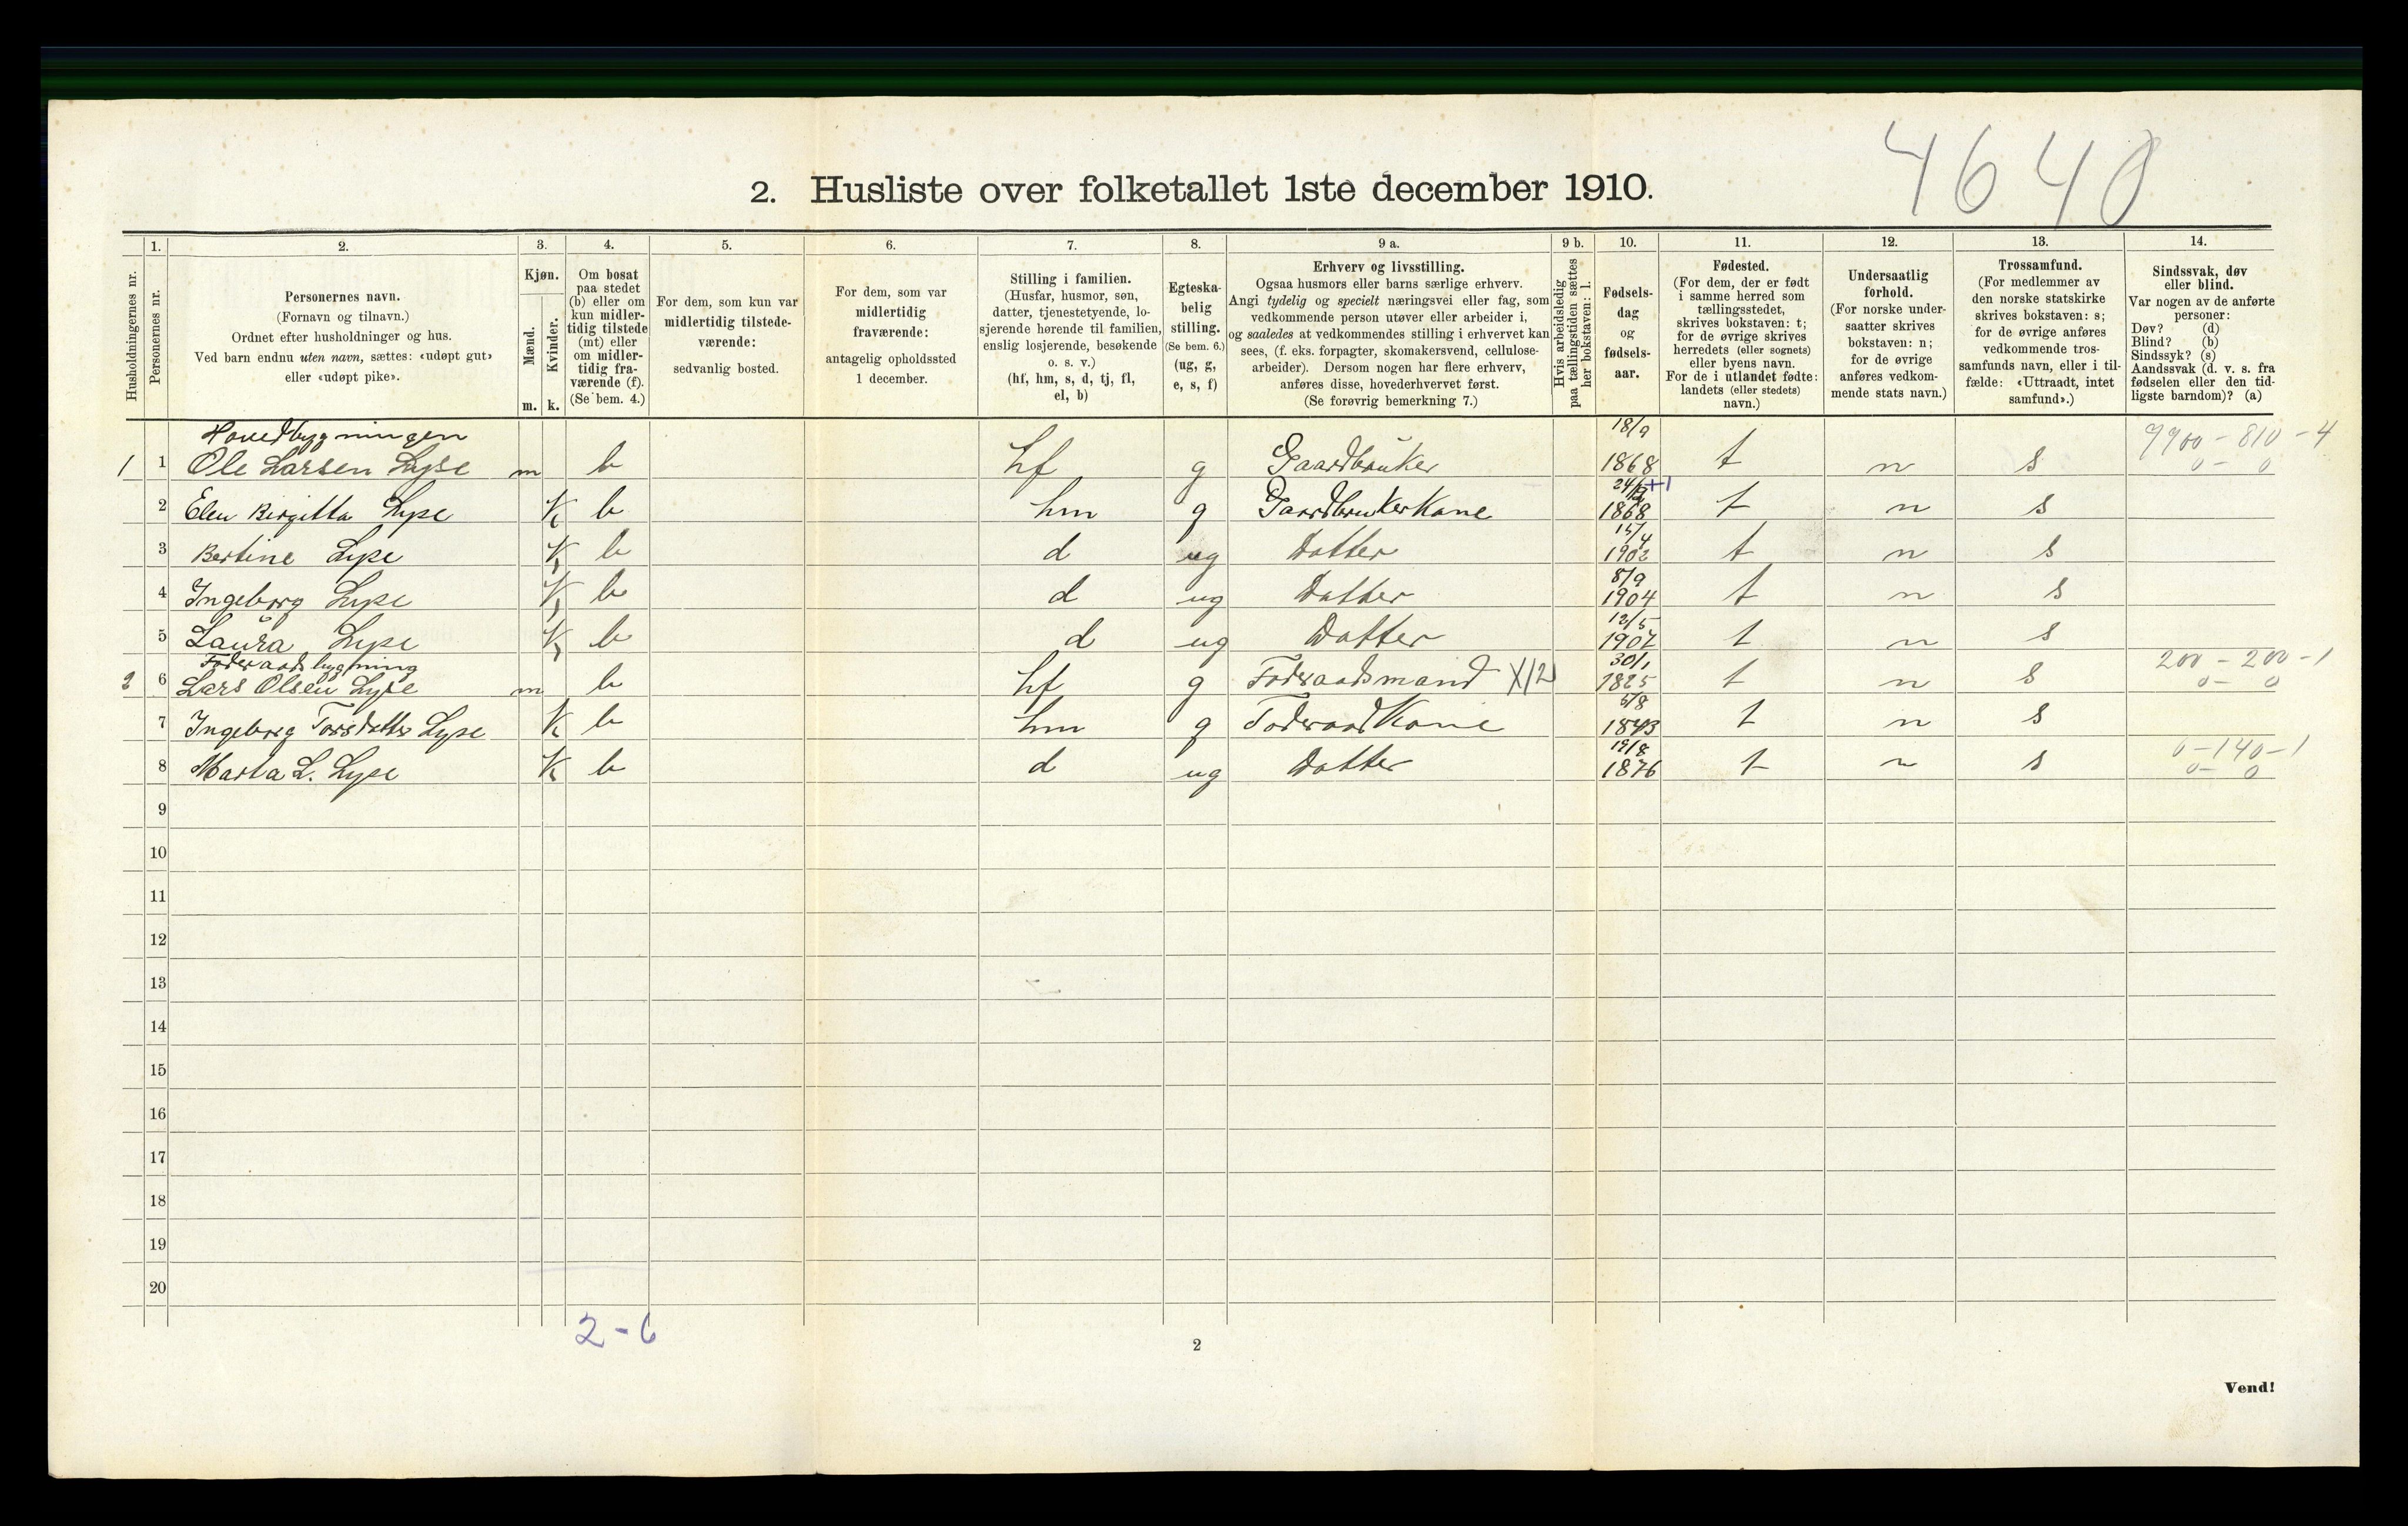 4640
2. Husliste over folketallet 1ste december 1910.
Husholdningernes nr.
1.
Personernes nr.
2.
Personernes navn.
(Fornavn og tilnavn.)
Ordnet efter husholdninger og hus.
Ved barn endnu uten navn, sættes: «udøpt gut»
eller «udøpt pike».
3.
Kjøn.
Mænd.
Kvinder.
m. k.
4.
Om bosat
paa stedet
(b) eller om
kun midler-
tidig tilstede
(mt) eller
om midler-
tidig fra-
værende (f).
(Se bem. 4.)
5.
For dem, som kun var
midlertidig tilstede-
værende:
sedvanlig bosted.
6.
For dem, som var
midlertidig
fraværende:
antagelig opholdssted
1 december.
7.
Stilling i familien.
(Husfar, husmor, søn,
datter, tjenestetyende, lo-
sjerende hørende til familien,
enslig losjerende, besøkende
o. s. v.)
(hf, hm, s, d, tj, fl,
el, b)
8.
Egteska-
belig
stilling.
(Se bem. 6.)
(ug, g,
e, s, f)
9 a.
Erhverv og livsstilling.
Ogsaa husmors eller barns særlige erhverv.
Angi tydelig og specielt næringsvei eller fag, som
vedkommende person utøver eller arbeider i,
og saaledes at vedkommendes stilling i erhvervet kan
sees, (f. eks. forpagter, skomakersvend, cellulose-
arbeider). Dersom nogen har flere erhverv,
anføres disse, hovederhvervet først.
(Se forøvrig bemerkning 7.)
9 b.
Hvis arbeidsledig
paa tællingstiden sættes
her bokstaven: l.
10.
Fødsels-
dag
og
fødsels-
aar.
11.
Fødested.
(For dem, der er født
i samme herred som
tællingsstedet,
skrives bokstaven: t;
for de øvrige skrives
herredets (eller sognets)
eller byens navn.
For de i utlandet fødte:
landets (eller stedets)
navn.)
12.
Undersaatlig
forhold.
(For norske under-
saatter skrives
bokstaven: n;
for de øvrige
anføres vedkom-
mende stats navn.)
13.
Trossamfund.
(For medlemmer av
den norske statskirke
skrives bokstaven: s;
for de øvrige anføres
vedkommende tros-
samfunds navn, eller i til-
fælde: «Uttraadt, intet
samfund».)
14.
Sindssvak, døv
eller blind.
Var nogen av de anførte
personer:
Døv? (d)
Blind? (b)
Sindssyk? (s)
Aandssvak (d. v. s. fra
fødselen eller den tid-
ligste barndom)? (a)
Hovedbygningen
1 1 Ole Larsen Lyse m b hf g Gaardbruker 18/9 1868 t n s 9900 - 810 - 4
0 - 0
2 Elen Birgitta Lyse K b hm g Gaardbruker Kone 1868 t n s
3 Bertine Lyse K b d ug Datter 15/4 1902 t n s
4 Ingeborg Lyse K b d ug Datter 8/9 1904 t n s
5 Laura Lyse K b d ug Datter 12/5 1907 t n s
Foderaadsbygning
2 6 Lars Olsen Lyse m b hf g Foderaadsmand X12 30/1 1825 t n s 200 - 200 - 1
0 - 0
7 Ingeborg Torsdatter Lyse K b hm g Foderaad Kone 5/8 1843 t n s
8 Marta L. Lyse K b d ug Datter 19/8 1876 t n s 0 - 140 - 1
0 - 0
9
10
11
12
13
14
15
16
17
18
19
20
2 - 6
2
Vend!